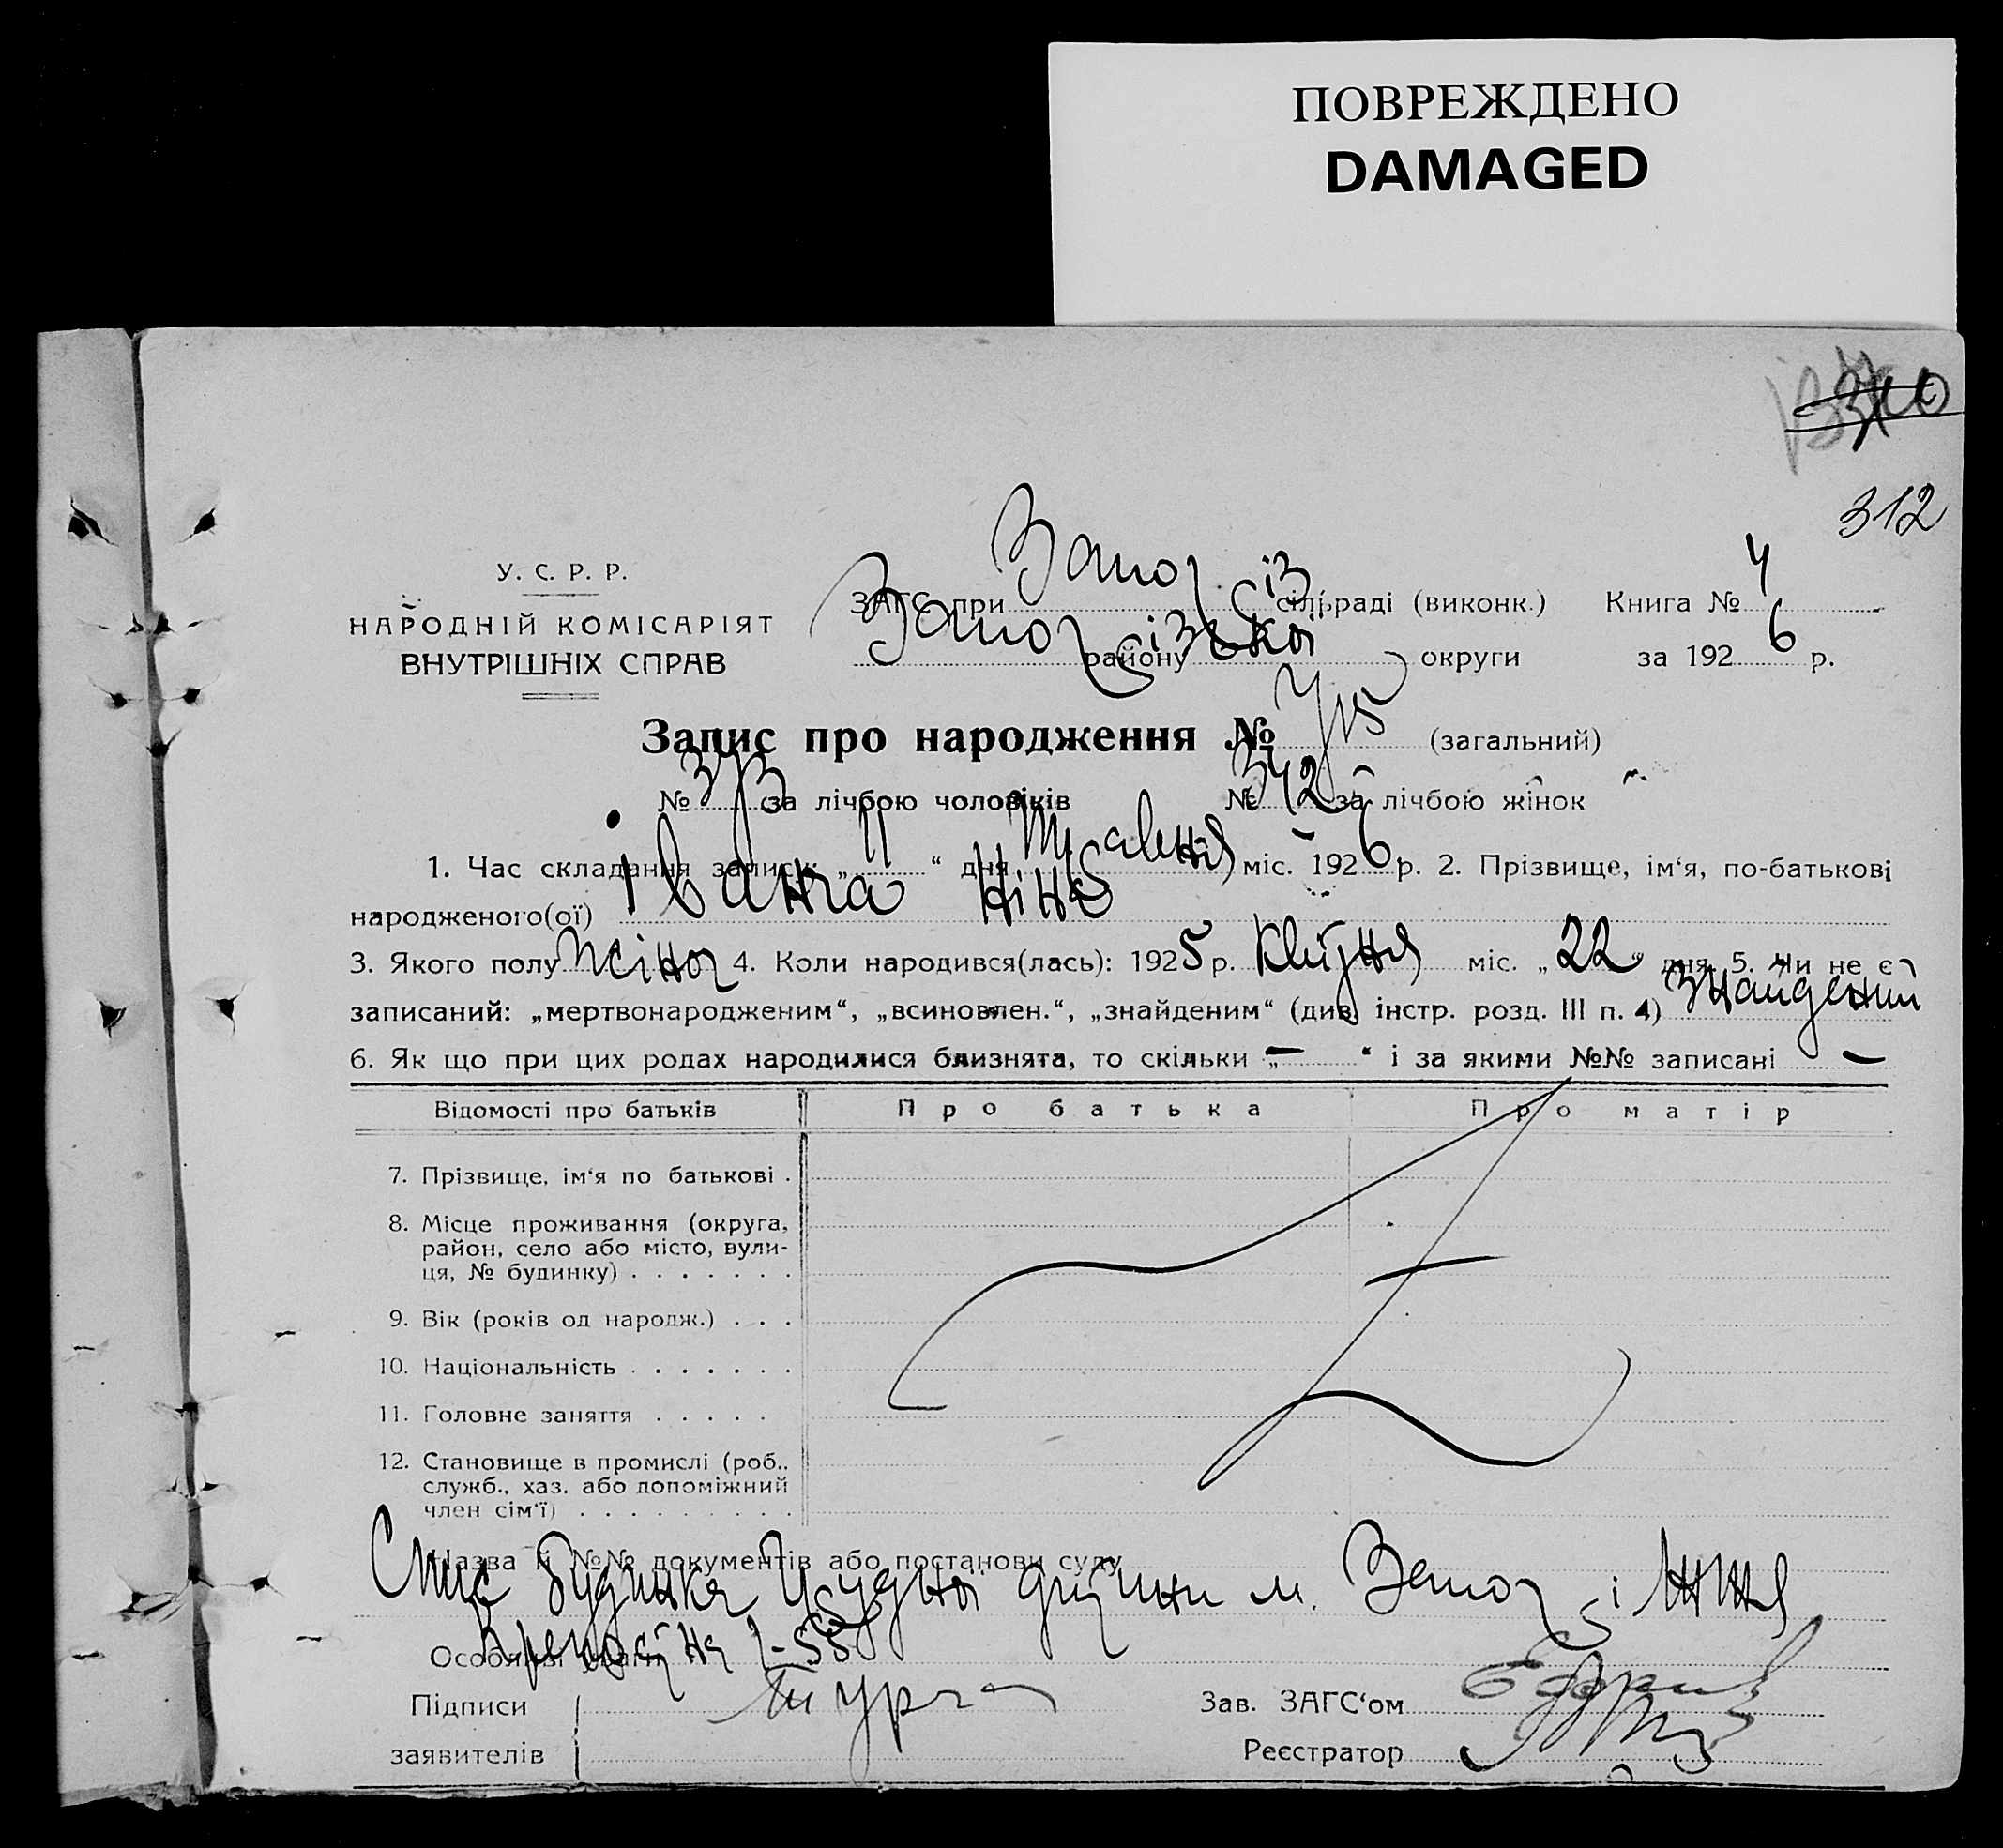 ПОВРЕЖДЕНО
DAMAGED
312
У. С. Р. Р.
НАРОДНІЙ КОМІСАРІЯТ
ВНУТРІШНІХ СПРАВ
ЗАГС при Запоріз сільраді (виконк.) Книга № 4
Запорізької району округи за 1926 р.
Запис про народження № 715 (загальний)
№ 373 за лічбою чоловіків № 342 за лічбою жінок
1. Час складання запису: „11“ дня травня міс. 1926 р. 2. Прізвище, ім‘я, по-батькові
народженого(ої) Іванча Ніна
3. Якого полу жіноч 4. Коли народився(лась): 1925 р. квітня міс. „22“ дня. 5. Чи не є
записаний: „мертвонародженим“, „всиновлен.“, „знайденим“ (див. інстр. розд. III п. 4) знайдений
6. Як що при цих родах народилися близнята, то скільки „—“ і за якими №№ записані —
Відомості про батьків Про батька Про матір
7. Прізвище, ім‘я по батькові .
8. Місце проживання (округа,
район, село або місто, вули-
ця, № будинку) . . . . . . .
9. Вік (років од народж.) . . .
10. Національність . . . . . . .
11. Головне заняття . . . . .
12. Становище в промислі (роб..
служб., хаз. або допоміжний
член сім‘ї) . . . . . . . . .
Назва й №№ документів або постанови суду
Спис будинка грудної дитини м. Запоріжжя
Особливі уваги
Підписи Зав. ЗАГС‘ом
заявителів Реєстратор